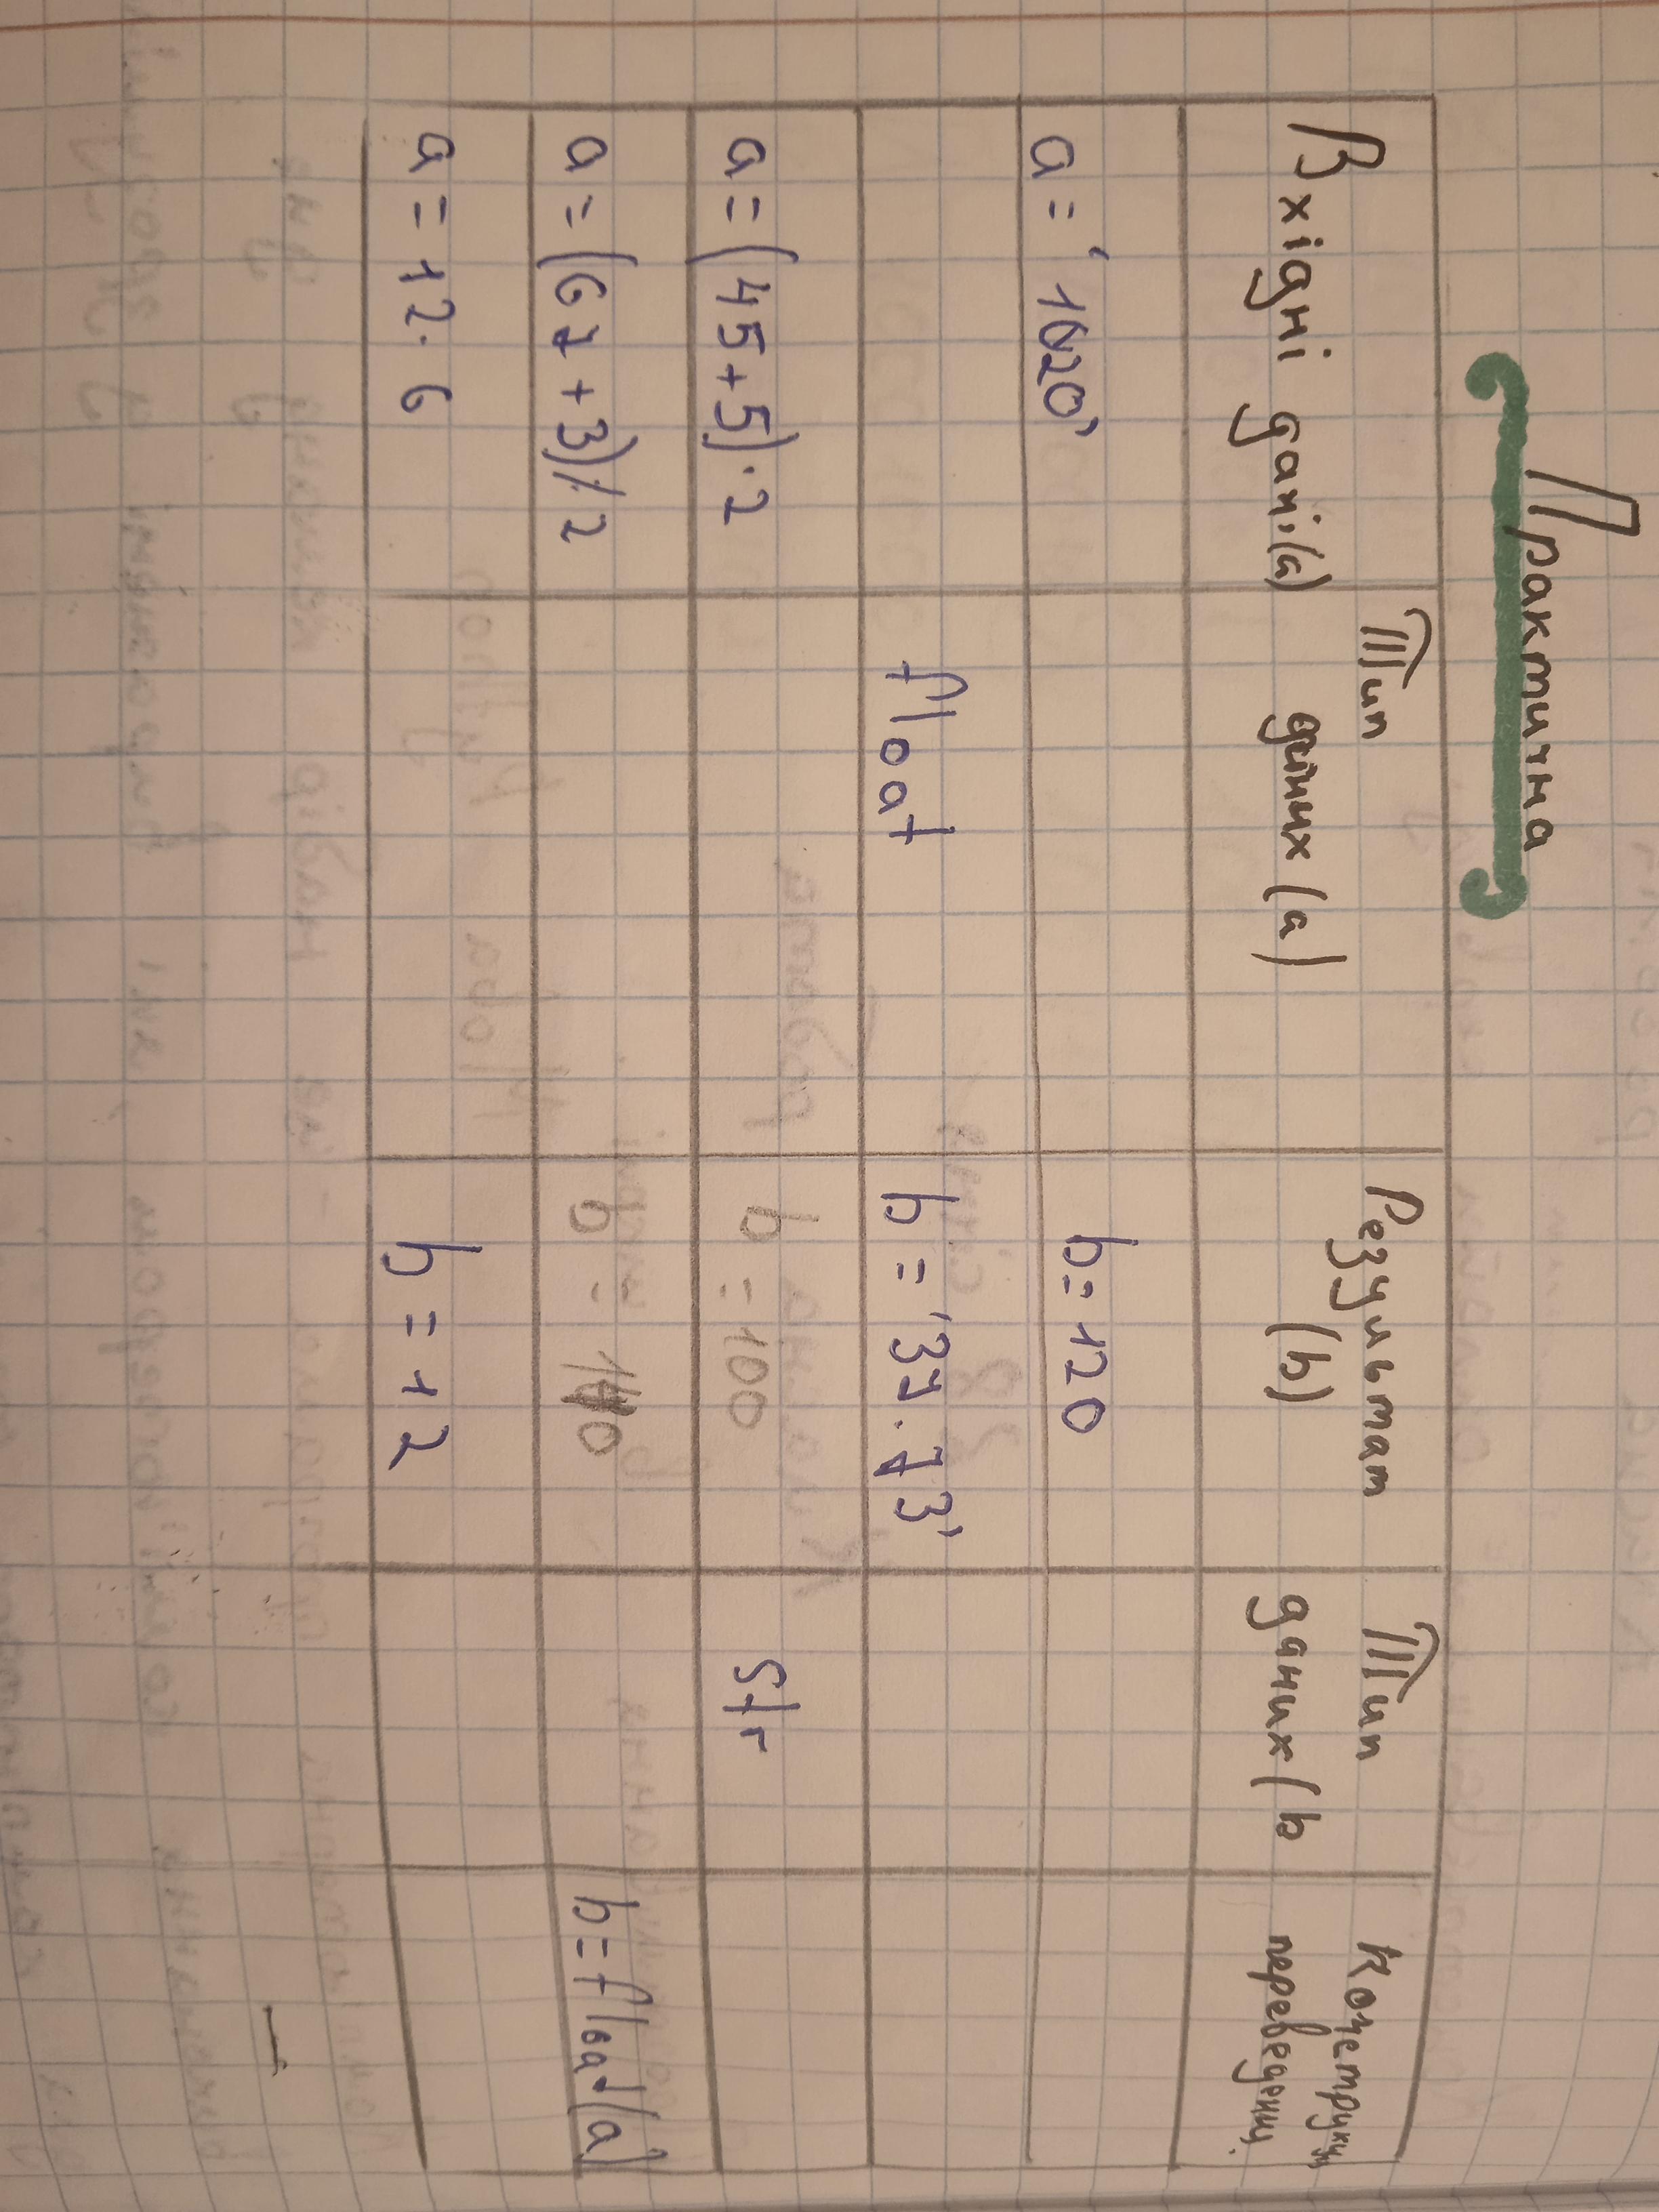 Практична
Вхідні дані(a)
Тип даних (a)
Результат (b)
Тип даних (b
переведення
a = '1020'
b = 120
float
b = '37.73'
a = (45+5)·2
b = 100
str
a = (67+3)/2
b =
b = float(a)
a = 12.6
b = 12